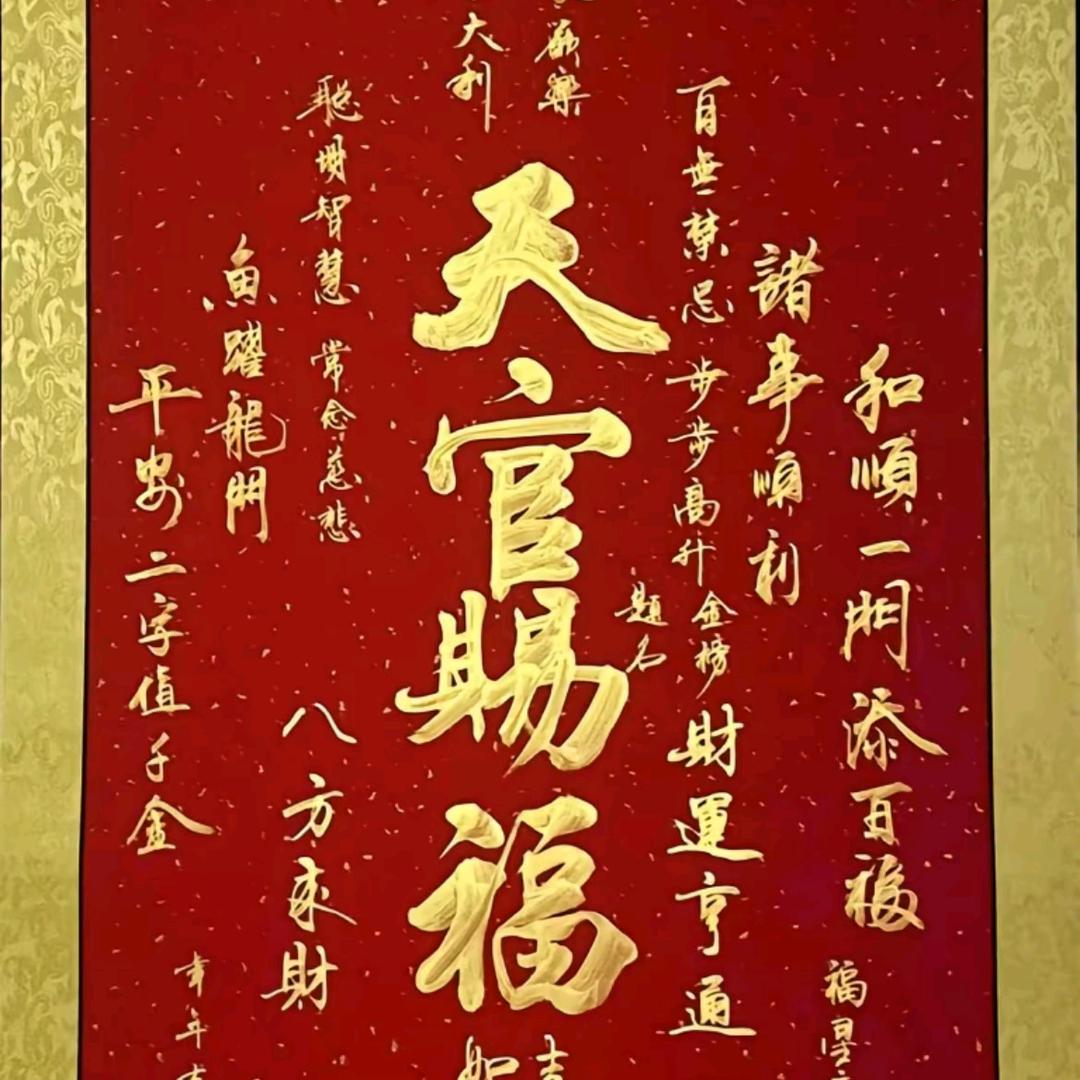 和順一門添百福
福星
諸事順利
百無禁忌
步步高升
金榜
題名
財運亨通
歡樂
大利
天官賜福
吉
如
聰明智慧
常念慈悲
八方來財
魚躍龍門
平安二字值千金
年